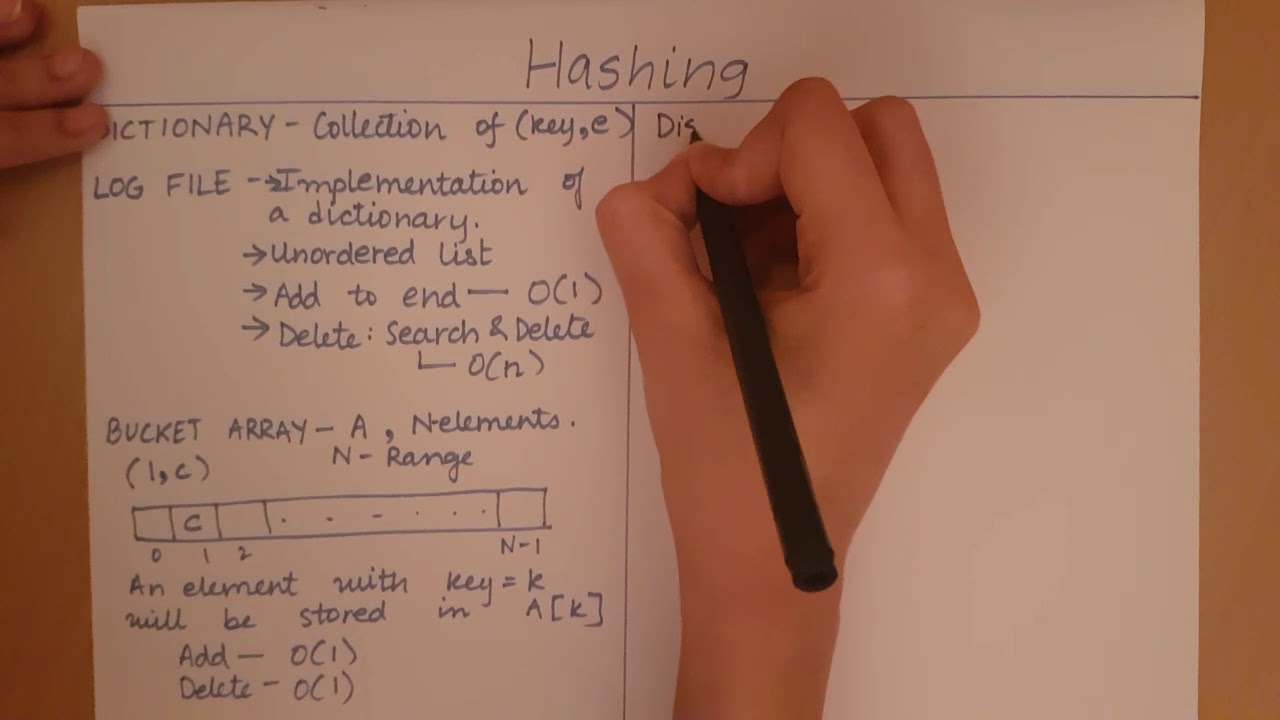 Hashing
DICTIONARY - Collection of (key,e)
LOG FILE -→ Implementation of
a dictionary.
→ Unordered list
→ Add to end — O(1)
→ Delete: Search & Delete
O(n)
BUCKET ARRAY - A, N-elements.
(1,c) N - Range
C
0 1 2 N-1
An element with key = k
will be stored in A[k]
Add — O(1)
Delete - O(1)
Dis